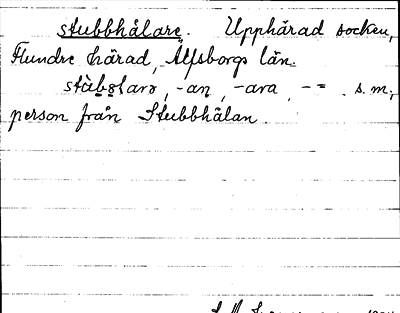 stubbhålare. Upphärad socken,
Flundre härad, Älfsborgs län.
-an, -ara, -= s. m.,
person från Stubbhålan.